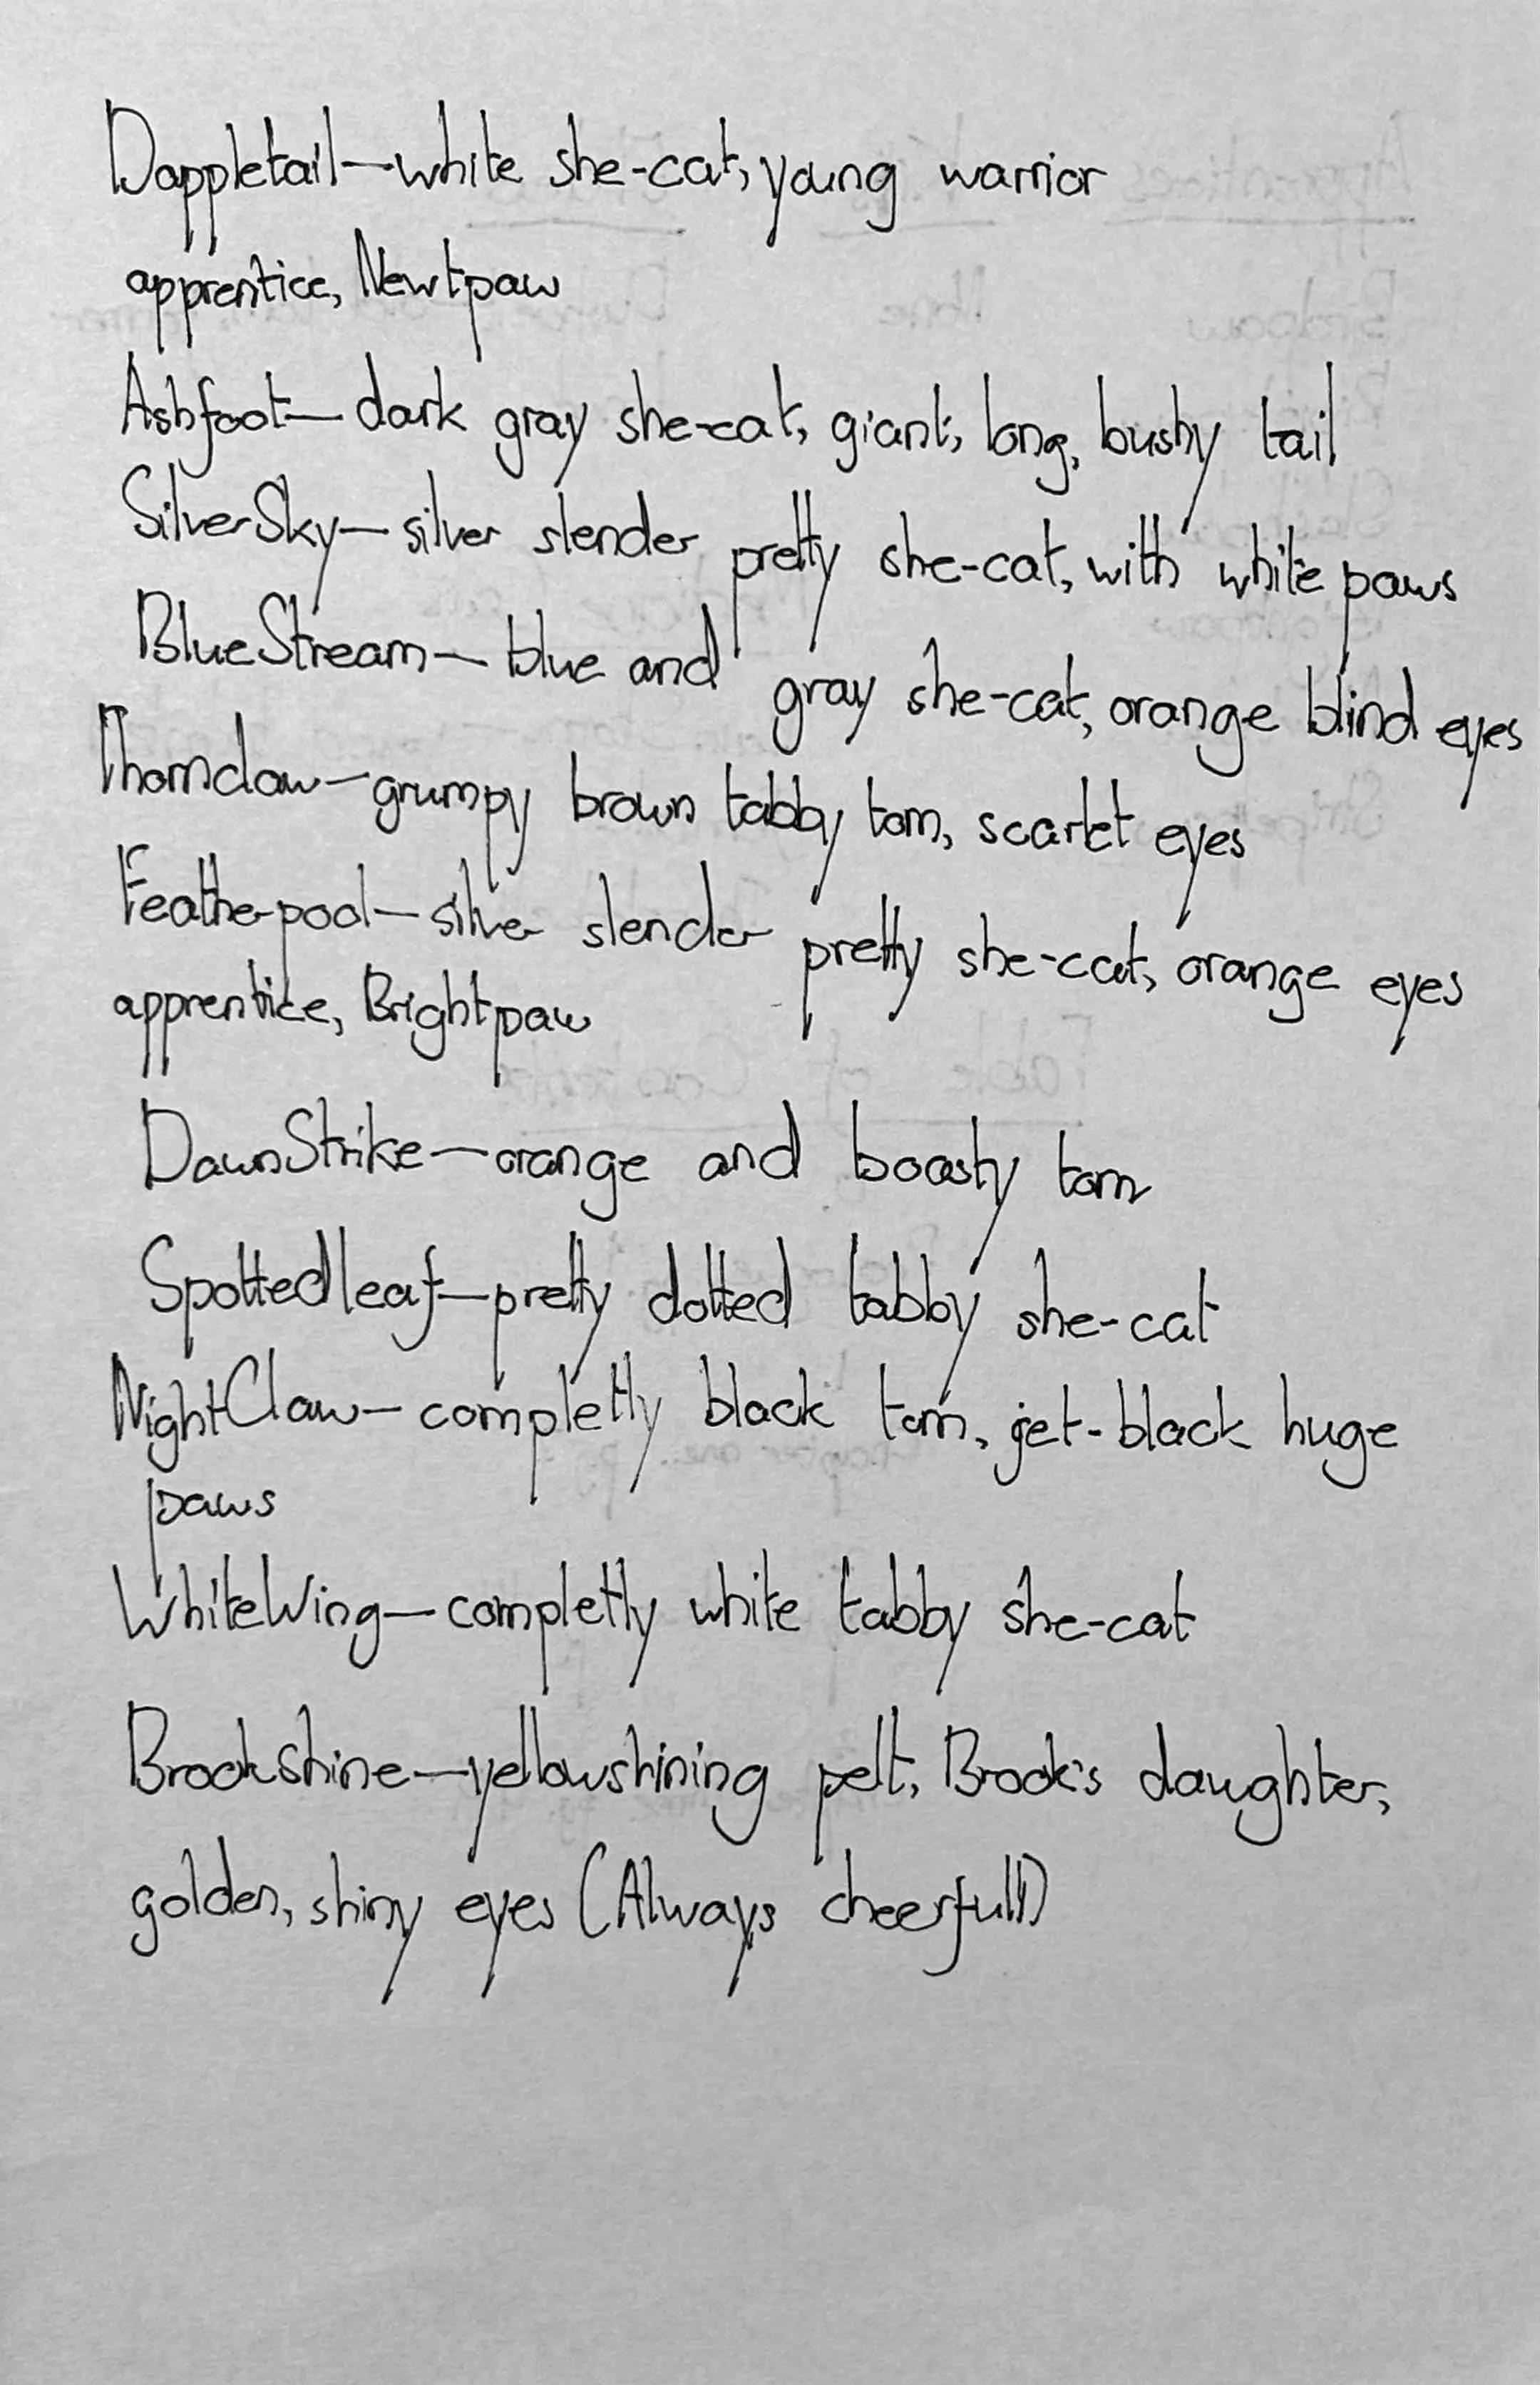 Dappletail—white she-cat, young warrior
apprentice, Newtpaw
Ashfoot—dark gray she-cat, giant, long, bushy tail
SilverSky—silver slender pretty she-cat, with white paws
BlueStream—blue and gray she-cat, orange blind eyes
Thornclaw—grumpy brown tabby tom, scarlet eyes
Featherpool—silver slender pretty she-cat, orange eyes
apprentice, Brightpaw
DawnStrike—orange and boasty tom
Spottedleaf—pretty dotted tabby she-cat
NightClaw—completly black tom, jet-black huge
paws
WhiteWing—completly white tabby she-cat
Brookshine—yellowshining pelt, Brook's daughter,
golden, shiny eyes (Always cheerfull)